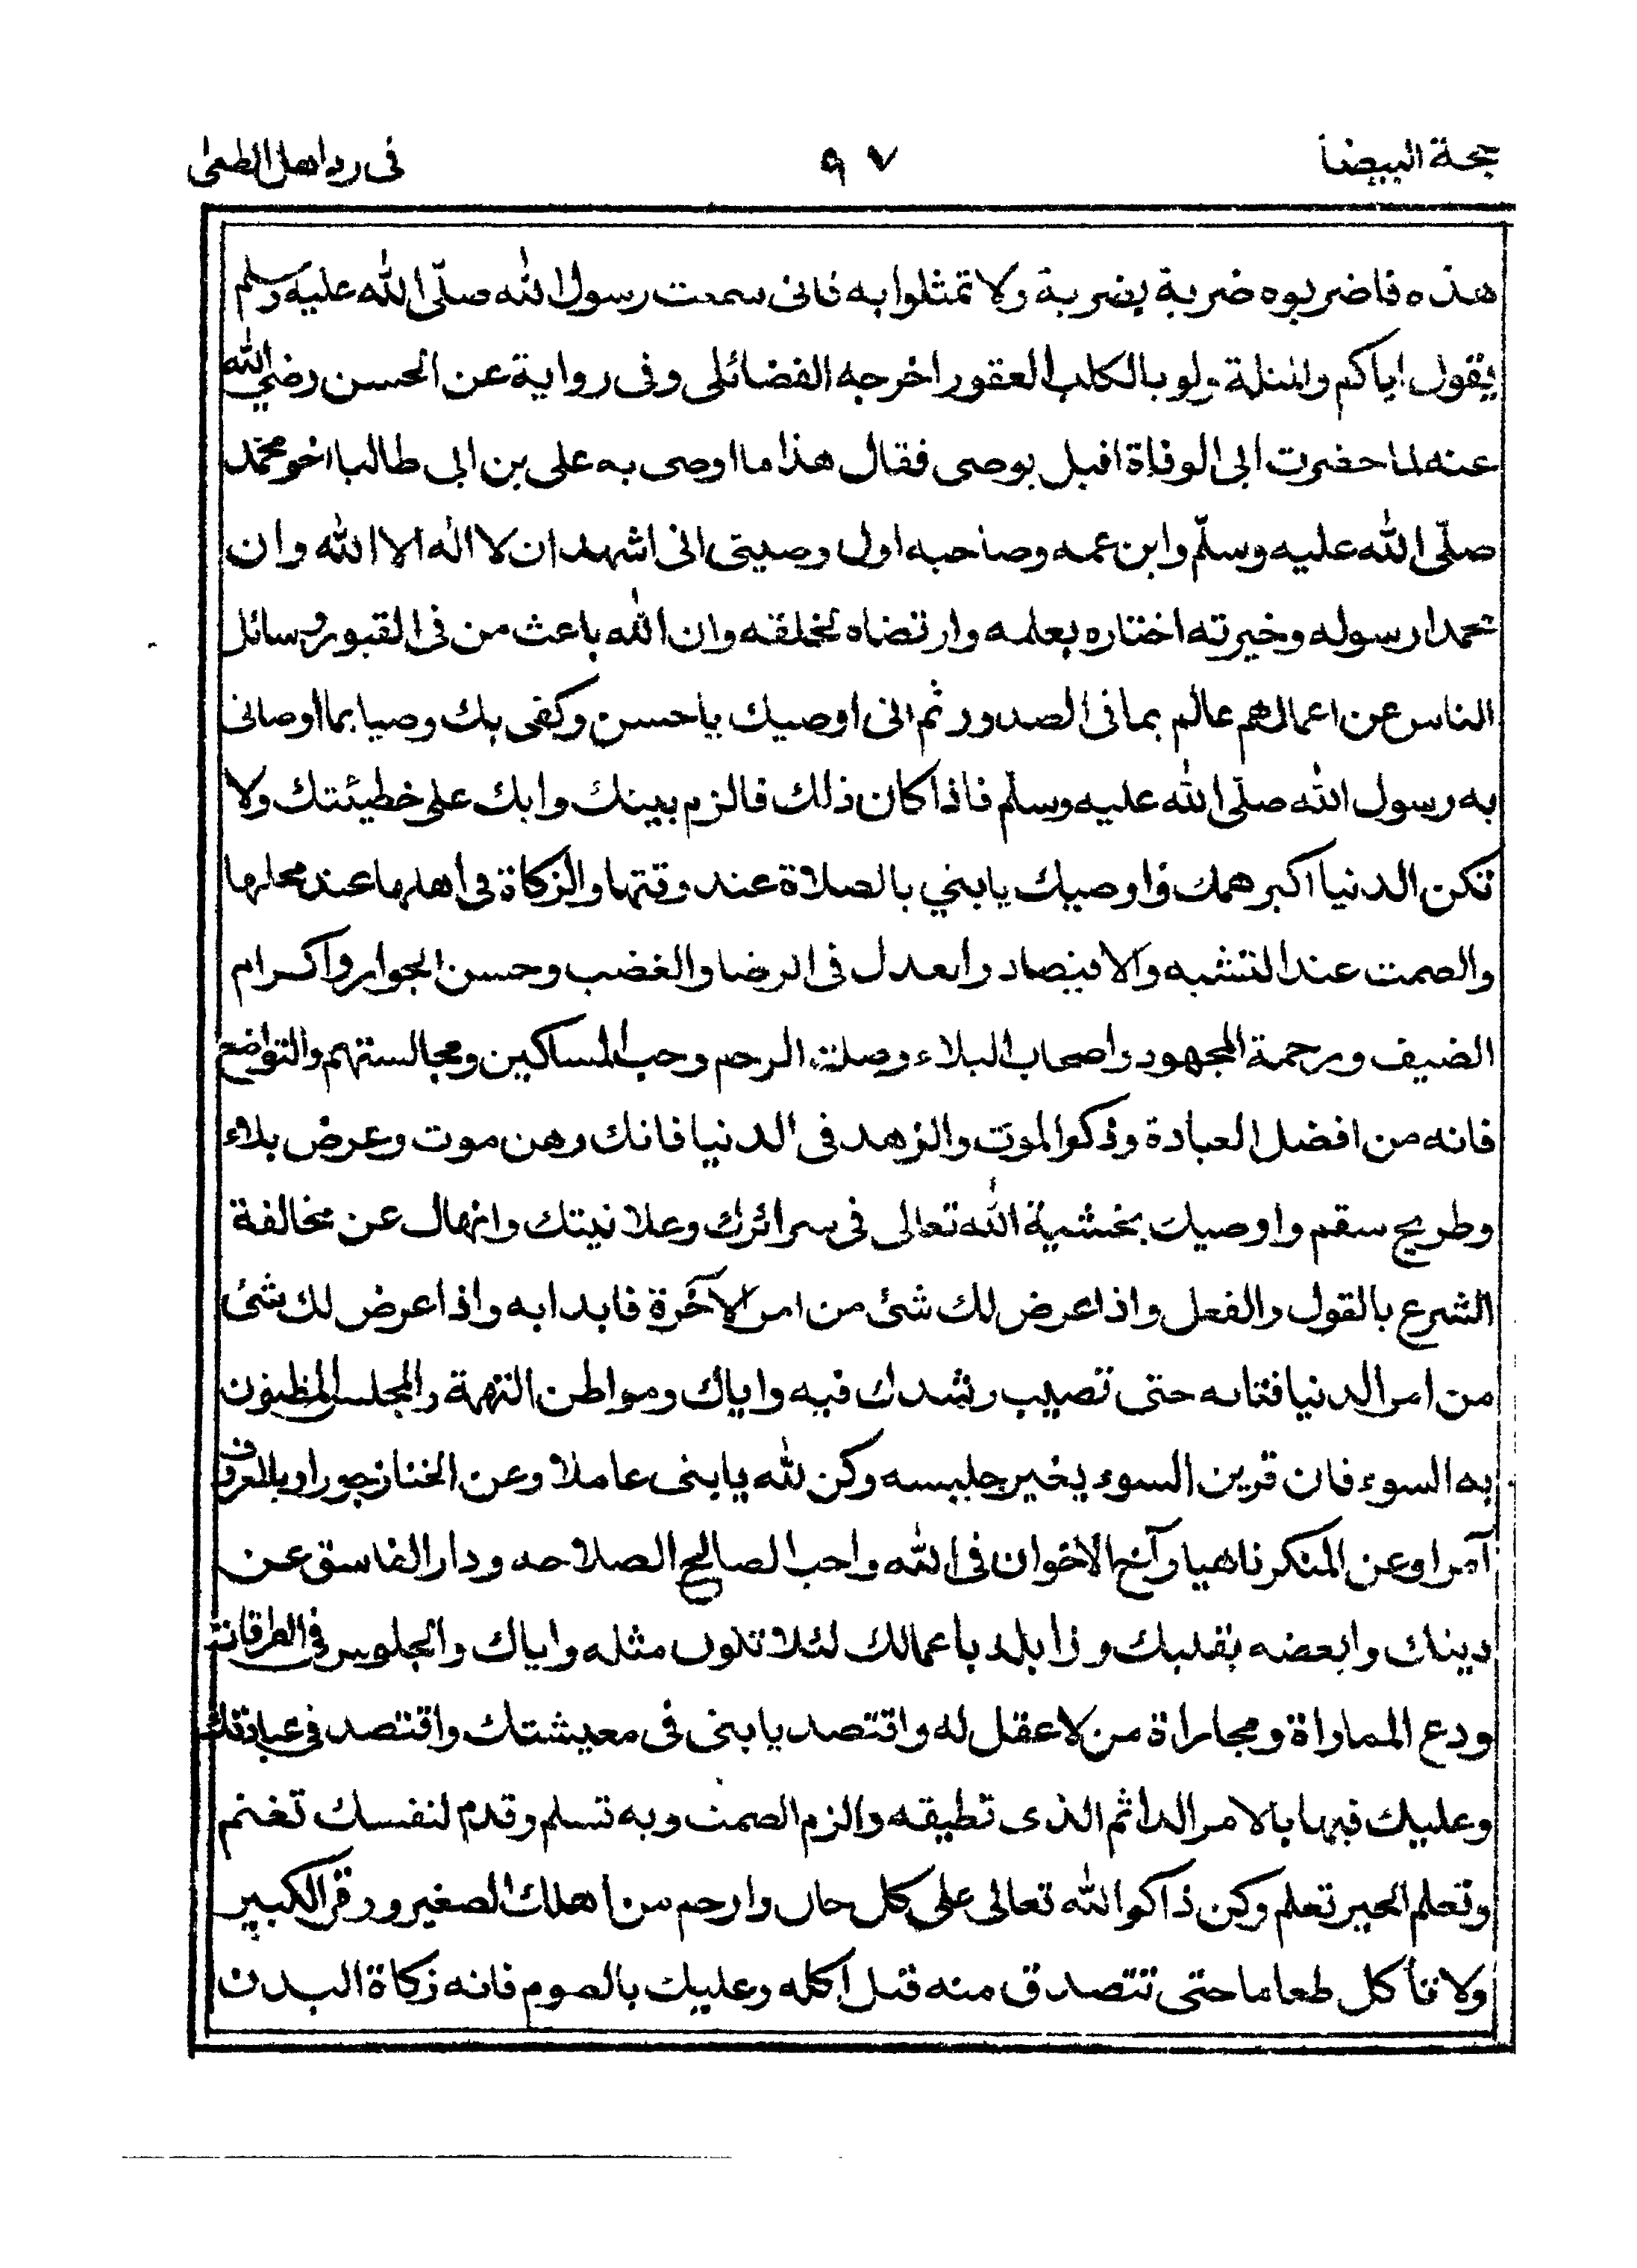 حجة البيضا ٩٧ فى رد اهل الطغى
هذه فاضربوه ضربة بضربة ولا تمثلوا به فانى سمعت رسول الله صلّى الله عليه وسلم
يقول اياكم والمثلة ولو بالكلب العقور اخرجه الفضائلى وفى رواية عن الحسن رضي الله
عنه لما حضرت ابى الوفاة اقبل يوصى فقال هذا ما اوصى به على بن ابى طالب اخو محمّد
صلّى الله عليه وسلّم وابن عمه وصاحبه اول وصيتى انى اشهد ان لا اله الا الله وان
محمدا رسوله وخيرته اختاره بعلمه وارتضاه لخلقه وان الله باعث من فى القبور وسائل
الناس عن اعمالهم عالم بما فى الصدور ثم انى اوصيك ياحسن وكفى بك وصيا بما اوصانى
به رسول الله صلّى الله عليه وسلّم فاذا كان ذلك فالزم بيتك وابك على خطيئتك ولا
تكن الدنيا اكبر همك واوصيك يابني بالصلاة عند وقتها والزكاة فى اهلها عند محلها
والصمت عند التشبه والاقتصاد والعدل فى الرضا والغضب وحسن الجوار واكرام
الضيف ورحمة المجهود واصحاب البلاء وصلة الرحم وحب المساكين ومجالستهم والتواضع
فانه من افضل العبادة وذكر الموت والزهد فى الدنيا فانك رهن موت وعرض بلاء
وطريح سقم واوصيك بخشية الله تعالى فى سرائرك وعلانيتك وانهاك عن مخالفة
الشرع بالقول والفعل واذا عرض لك شئ من امر الآخرة فابدا به واذا عرض لك شئ
من امر الدنيا فتانه حتى تصيب رشدك فيه واياك ومواطن التهمة والمجلس المظنون
به السوء فان قرين السوء يغير جليسه وكن لله يابنى عاملا وعن الخنا زجورا وبالمعروف
آمرا وعن المنكر ناهيا وآخ الاخوان فى الله واحب الصالح لصلاحه ودار الفاسق عن
دينك وابغضه بقلبك وزايله باعمالك لئلا تكون مثله واياك والجلوس فى الطرقات
ودع المماراة ومجاراة من لا عقل له واقتصد يابنى فى معيشتك واقتصد فى عبادتك
وعليك فيها بالامر الدائم الذى تطيقه والزم الصمت وبه تسلم وقدم لنفسك تغنم
وتعلم الخير تعلم وكن ذاكر الله تعالى على كل حال وارحم من اهلك الصغير ووقر الكبير
ولا تأكل طعاما حتى تتصدق منه قبل اكله وعليك بالصوم فانه زكاة البدن